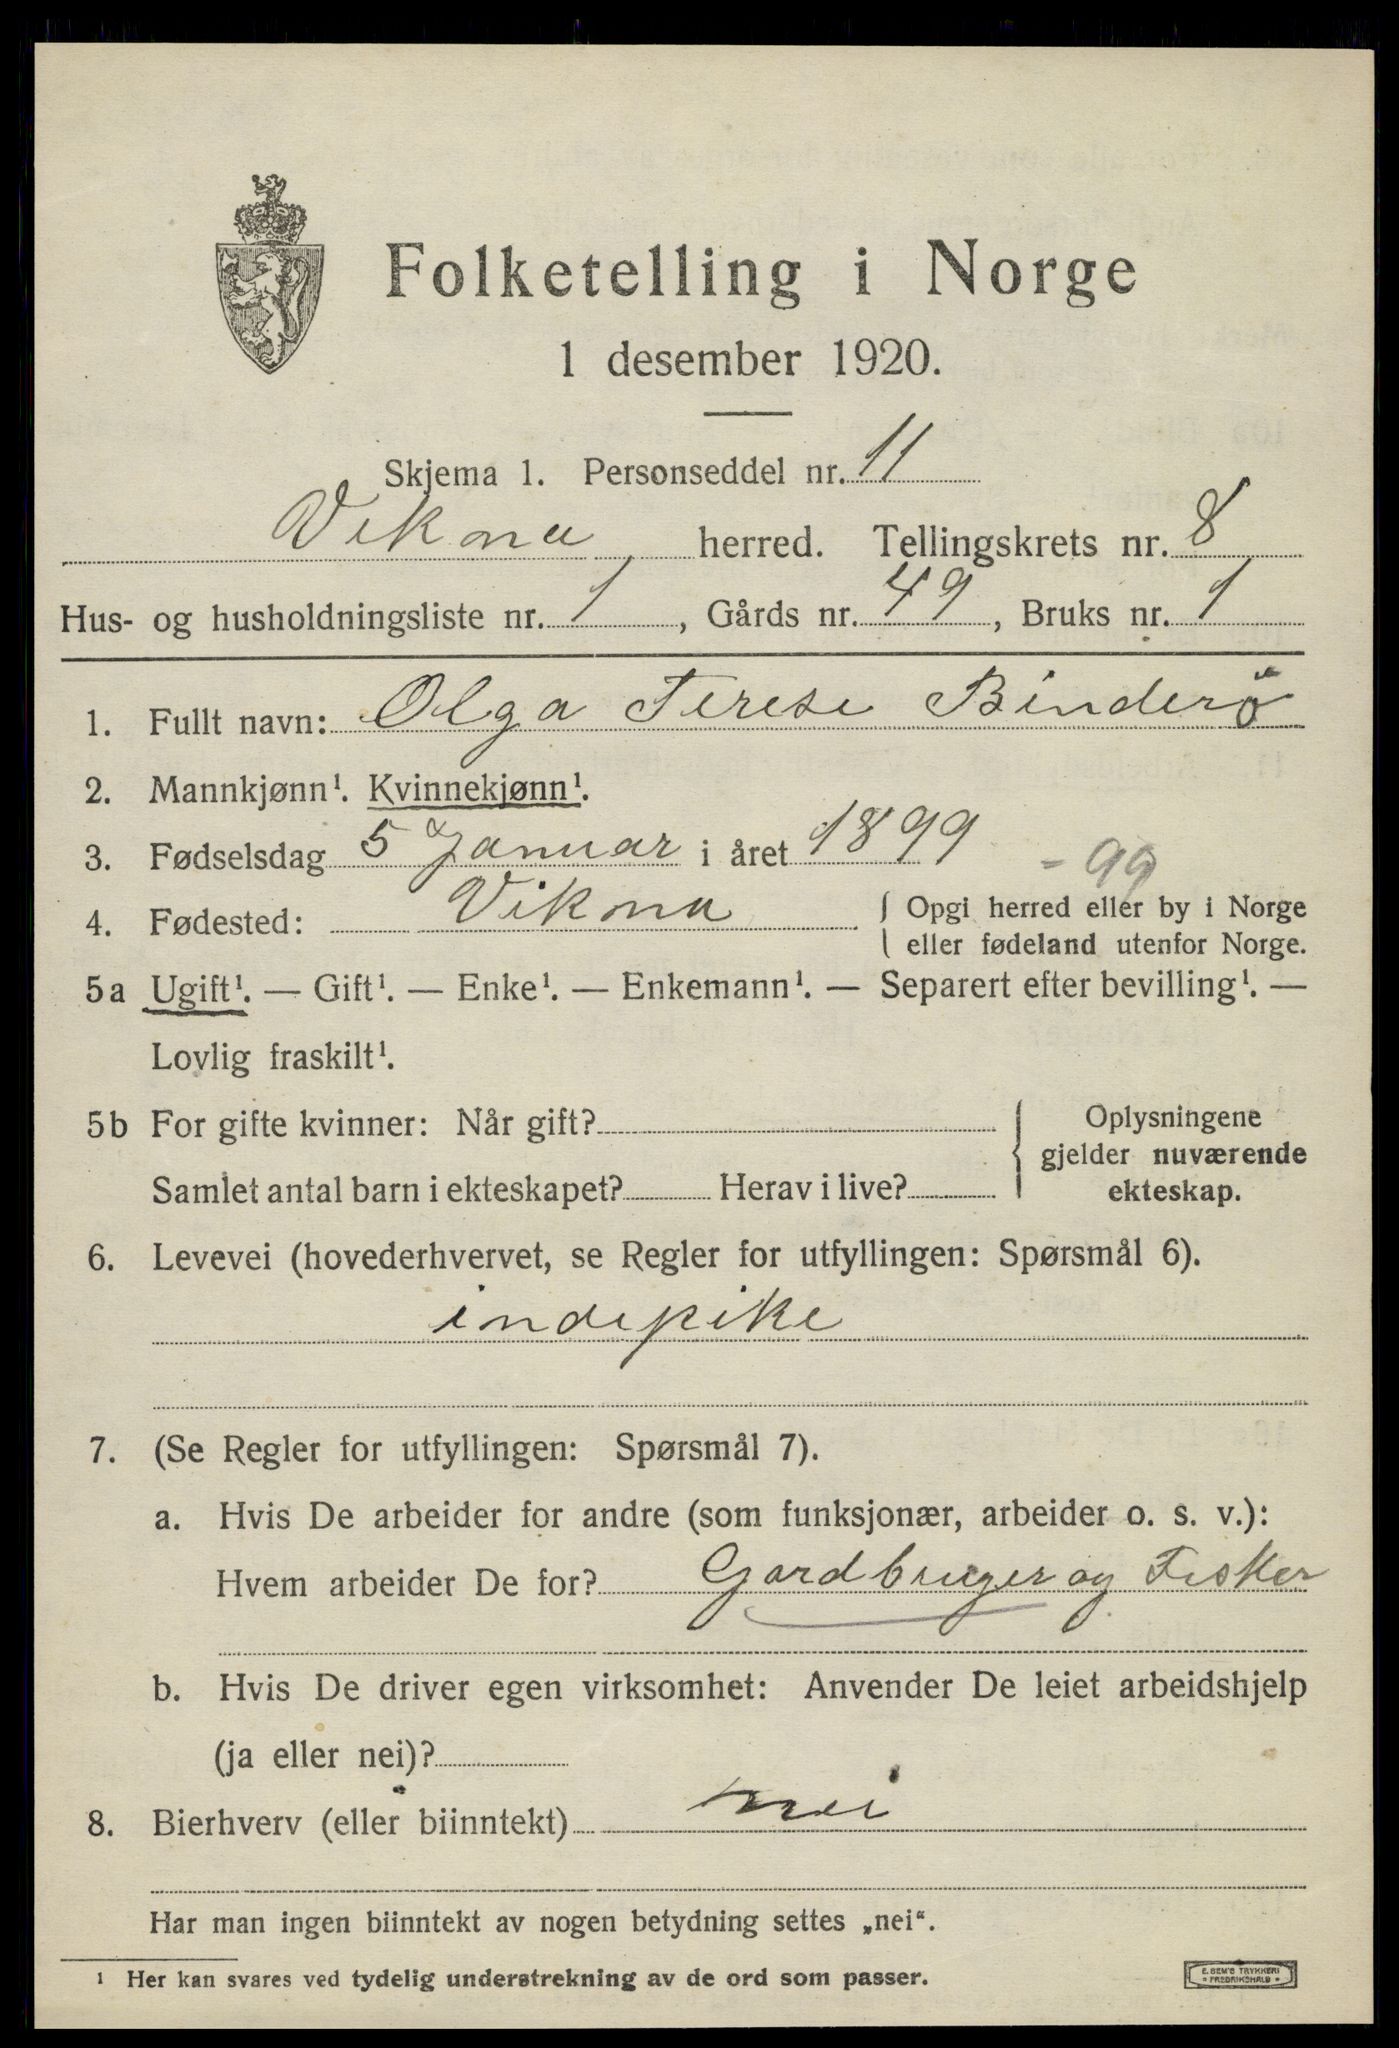 Folketelling i Norge
1 desember 1920.
Skjema 1. Personseddel nr. 11
Vikna herred. Tellingskrets nr. 8
Hus- og husholdningsliste nr. 1, Gårds nr. 49, Bruks nr. 1
1. Fullt navn: Olga Terese Binderø
2. Mannkjønn¹. Kvinnekjønn¹.
3. Fødselsdag 5 Januar i året 1899 - 99
4. Fødested: Vikna { Opgi herred eller by i Norge
eller fødeland utenfor Norge.
5a Ugift¹. — Gift¹. — Enke¹. — Enkemann¹. — Separert efter bevilling¹. —
Lovlig fraskilt¹.
5b For gifte kvinner: Når gift? { Oplysningene
gjelder nuværende
Samlet antal barn i ekteskapet? Herav i live? ekteskap.
6. Levevei (hovederhvervet, se Regler for utfyllingen: Spørsmål 6).
indepike
7. (Se Regler for utfyllingen: Spørsmål 7).
a. Hvis De arbeider for andre (som funksjonær, arbeider o. s. v.):
Hvem arbeider De for? Gardbruger og Fisker
b. Hvis De driver egen virksomhet: Anvender De leiet arbeidshjelp
(ja eller nei)?
8. Bierhverv (eller biinntekt) nei
Har man ingen biinntekt av nogen betydning settes „nei“.
¹ Her kan svares ved tydelig understrekning av de ord som passer.
E. SEM'S TRYKKERI
• FREDRIKSHALD •